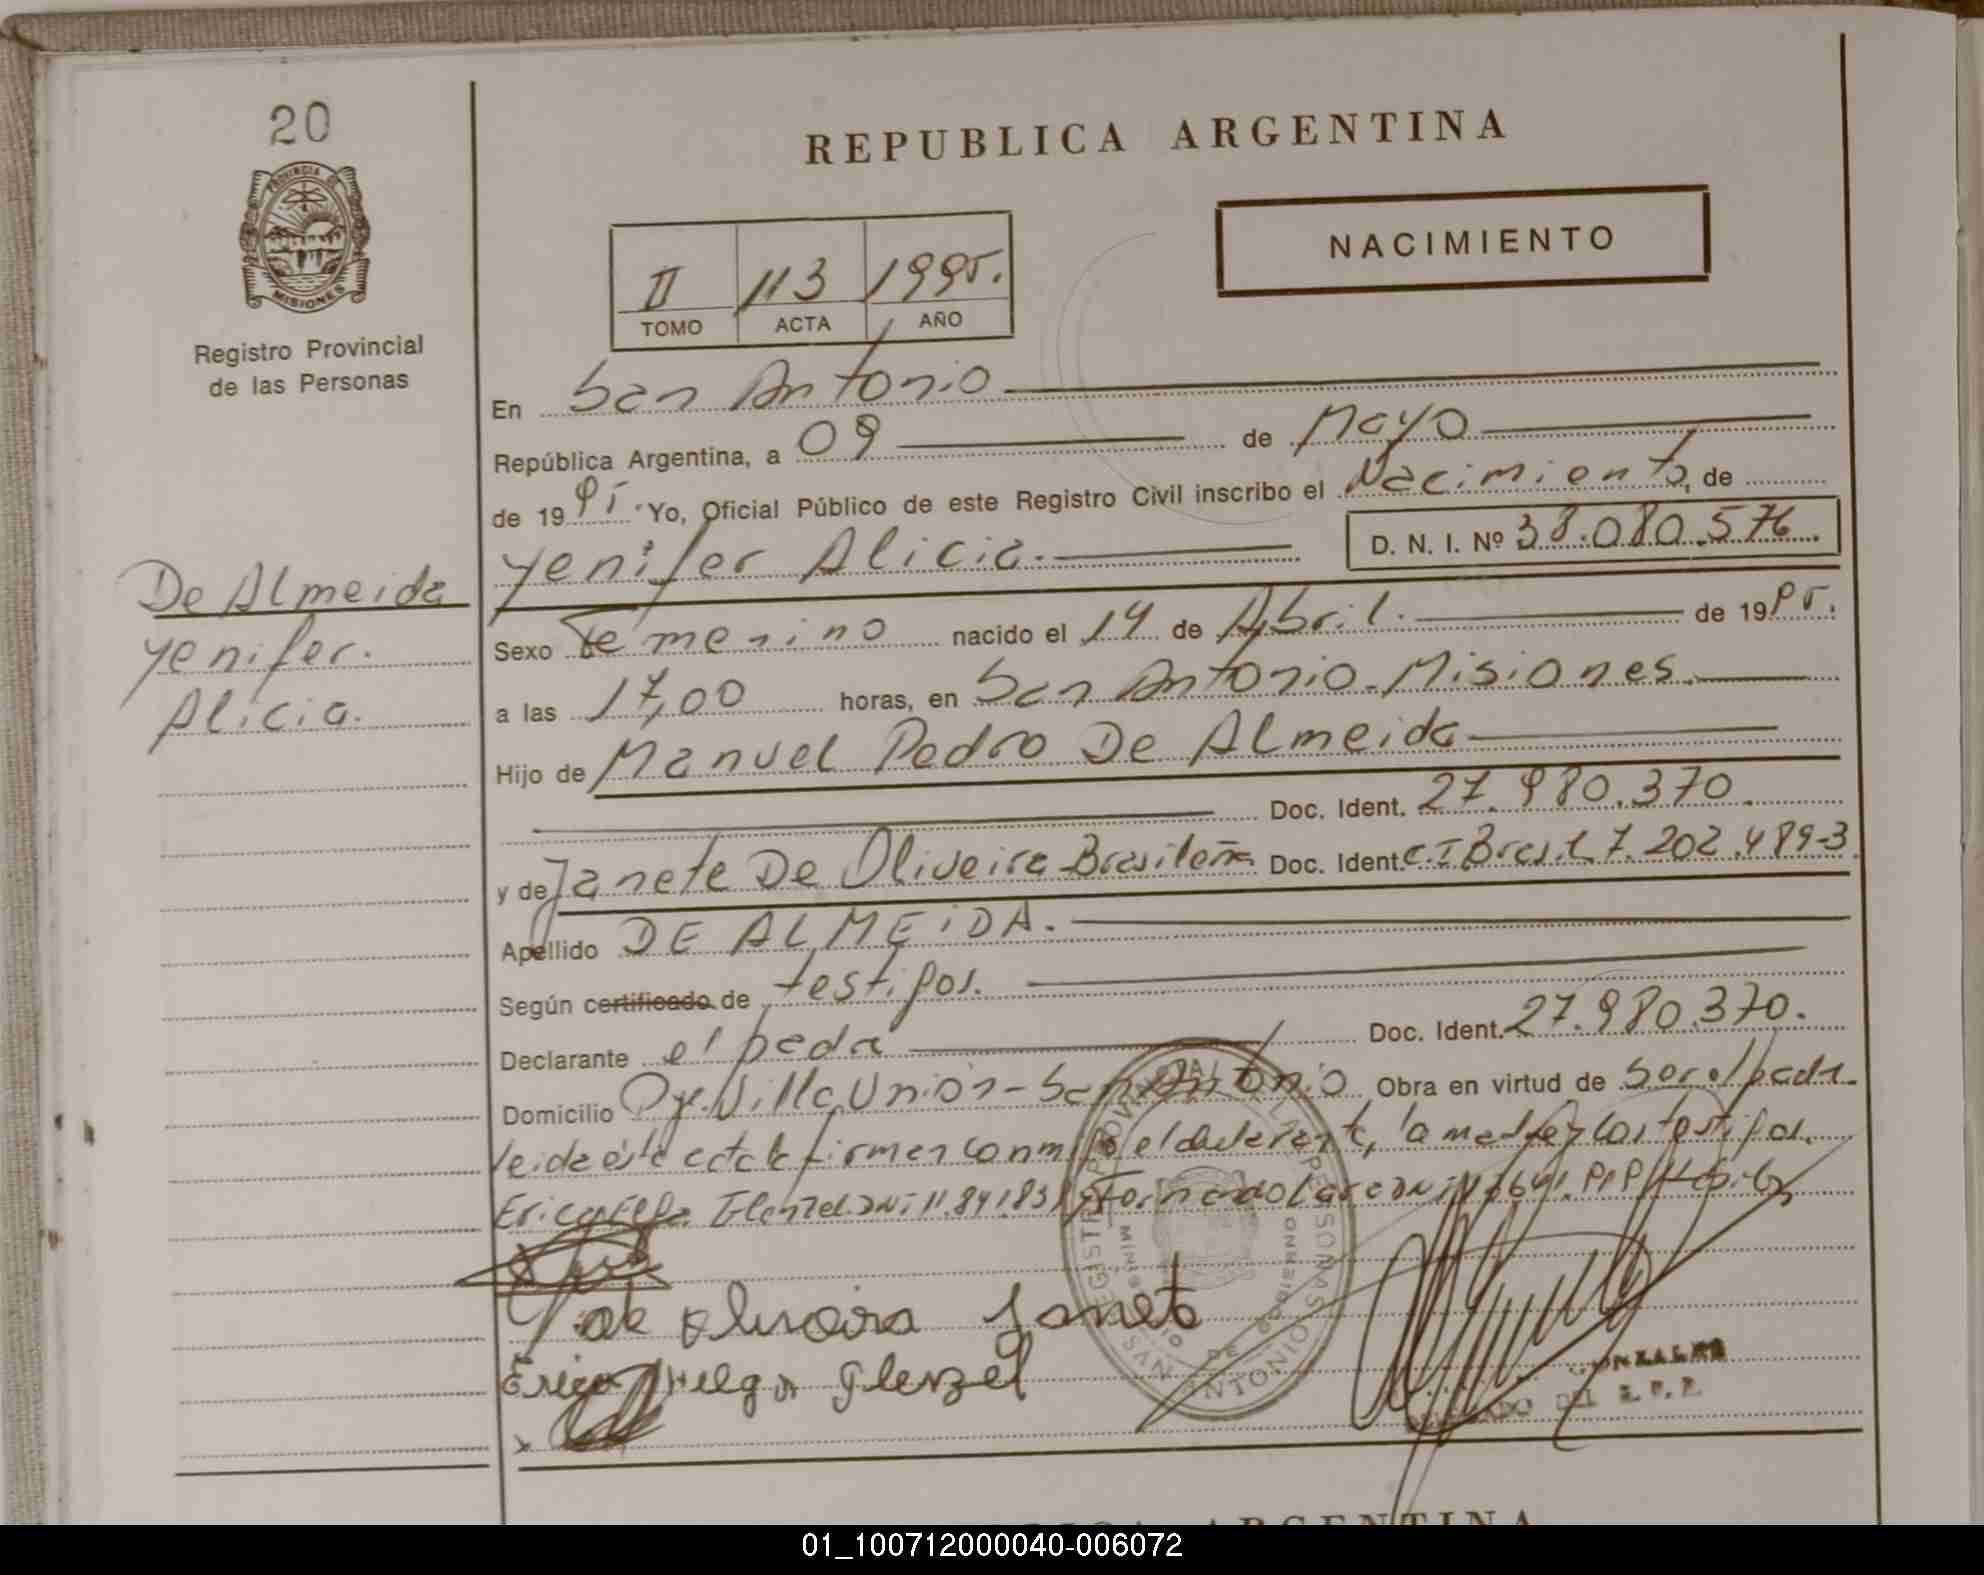 20
PROVINCIA DE
MISIONES
Registro Provincial
de las Personas
REPUBLICA ARGENTINA
NACIMIENTO
II 113 1995.
TOMO ACTA AÑO
En San Antonio
República Argentina, a 09 de Mayo
de 1995. Yo, Oficial Público de este Registro Civil inscribo el Nacimiento, de
Yenifer Alicia. D. N. I. Nº 38.080.576.
De Almeida
Yenifer.
Alicia.
Sexo Femenino nacido el 14 de Abril. de 1995.
a las 17,00 horas, en San Antonio - Misiones.
Hijo de Manuel Pedro De Almeida
Doc. Ident. 27.980.370.
y de Janete De Oliveira - Brasileña Doc. Ident. C.I Brasil 7.202.489-3.
Apellido DE ALMEIDA.
Según certificado de testigos.
Declarante el padre Doc. Ident. 27.980.370.
Domicilio Pje. Villa Unión - San Antonio Obra en virtud de ser el padre.
leida éste acta la firman conmigo el declarante, la madre y los testigos.
Glenzel DNI 11.841.831 y
de Oliveira Janete
Erica Helga Glenzel
REGISTRO PROVINCIAL DE LAS PERSONAS
SAN ANTONIO
GONZALEZ
DELEGADO DEL R. P. P.
ARGENTINA
01_100712000040-006072